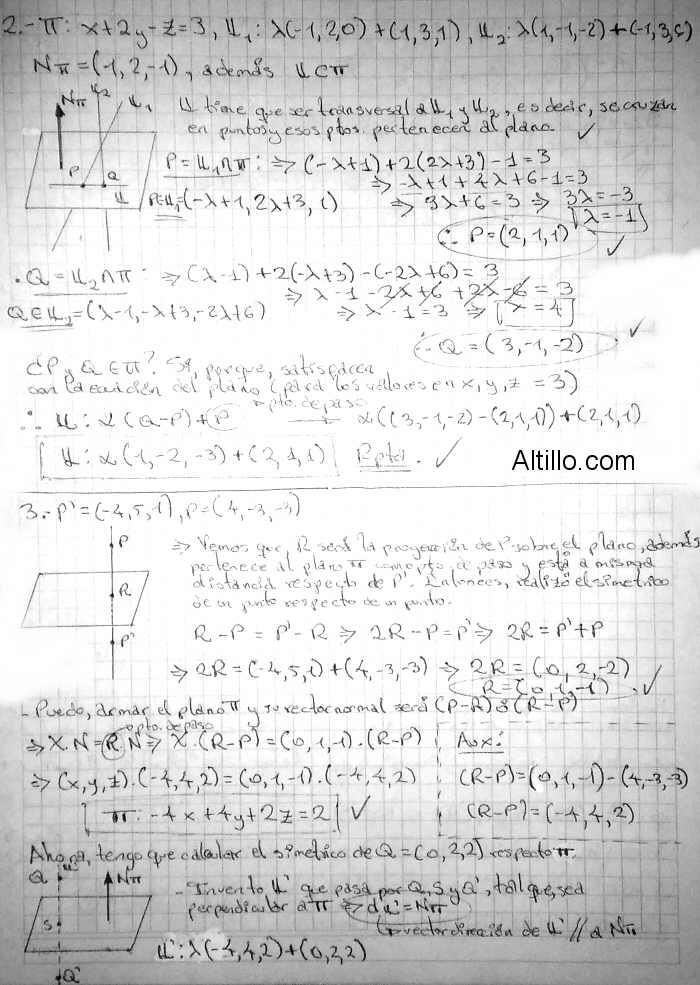 2.- π: x+2y-z=3, 𝕃₁: λ(-1,2,0)+(1,3,1), 𝕃₂: λ(1,-1,-2)+(-1,3,6)
Nπ=(1,2,-1), además 𝕃⊂π
Nπ 𝕃₂ 𝕃₁
𝕃 tiene que ser transversal a 𝕃₁ y 𝕃₂, es decir, se cruzan
en puntos y esos ptos. pertenecen al plano. ✓
P Q 𝕃
P=𝕃₁∩π: ⇒ (-λ+1)+2(2λ+3)-1=3
⇒ -λ+1+4λ+6-1=3
P∈𝕃₁=(-λ+1, 2λ+3, 1) ⇒ 3λ+6=3 ⇒ 3λ=-3
λ=-1
∴ P=(2,1,1) ✓
• Q=𝕃₂∩π: ⇒ (λ-1)+2(-λ+3)-(-2λ+6)=3
⇒ λ-1-2λ+6+2λ-6=3
Q∈𝕃₂=(λ-1,-λ+3,-2λ+6) ⇒ λ-1=3 ⇒ λ=4
∴ Q=(3,-1,-2) ✓
¿P y Q∈π? Sí, porque, satisfacen
con la ecuación del plano (para los valores en x,y,z = 3)
pto. de paso
∴ 𝕃: α(Q-P)+P → α((3,-1,-2)-(2,1,1))+(2,1,1)
𝕃: α(1,-2,-3)+(2,1,1) Rpta. ✓
Altillo.com
3.- P'=(-4,5,1), P=(4,-3,-3)
P R P'
⇒ Vemos que, R será la proyección de P sobre el plano, además
pertenece al plano π como pto. de paso y está a misma
distancia respecto de P'. Entonces, realizo el simétrico
de un punto respecto de un punto.
R-P = P'-R ⇒ 2R-P=P' ⇒ 2R=P'+P
⇒ 2R=(-4,5,1)+(4,-3,-3) ⇒ 2R=(0,2,-2)
R=(0,1,-1) ✓
- Puedo, armar el plano π y su vector normal será (P-R) ó (R-P)
pto. de paso
⇒ X.N=R.N ⇒ X.(R-P)=(0,1,-1).(R-P)
Aux:
⇒ (x,y,z).(-4,4,2)=(0,1,-1).(-4,4,2)
(R-P)=(0,1,-1)-(4,-3,-3)
π: -4x+4y+2z=2 ✓
(R-P)=(-4,4,2)
Ahora, tengo que calcular el simétrico de Q=(0,2,2) respecto π.
Q 𝕃' Nπ S Q'
- Invento 𝕃' que pasa por Q, S y Q', tal que, sea
perpendicular a π ⇒ d𝕃'=Nπ
↳ vector dirección de 𝕃' // a Nπ
𝕃': λ(-4,4,2)+(0,2,2)